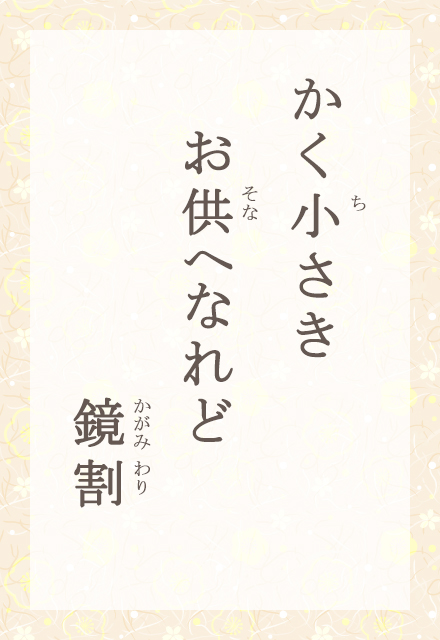 かく小さき
ち
お供へなれど
そな
鏡割
かがみ わり